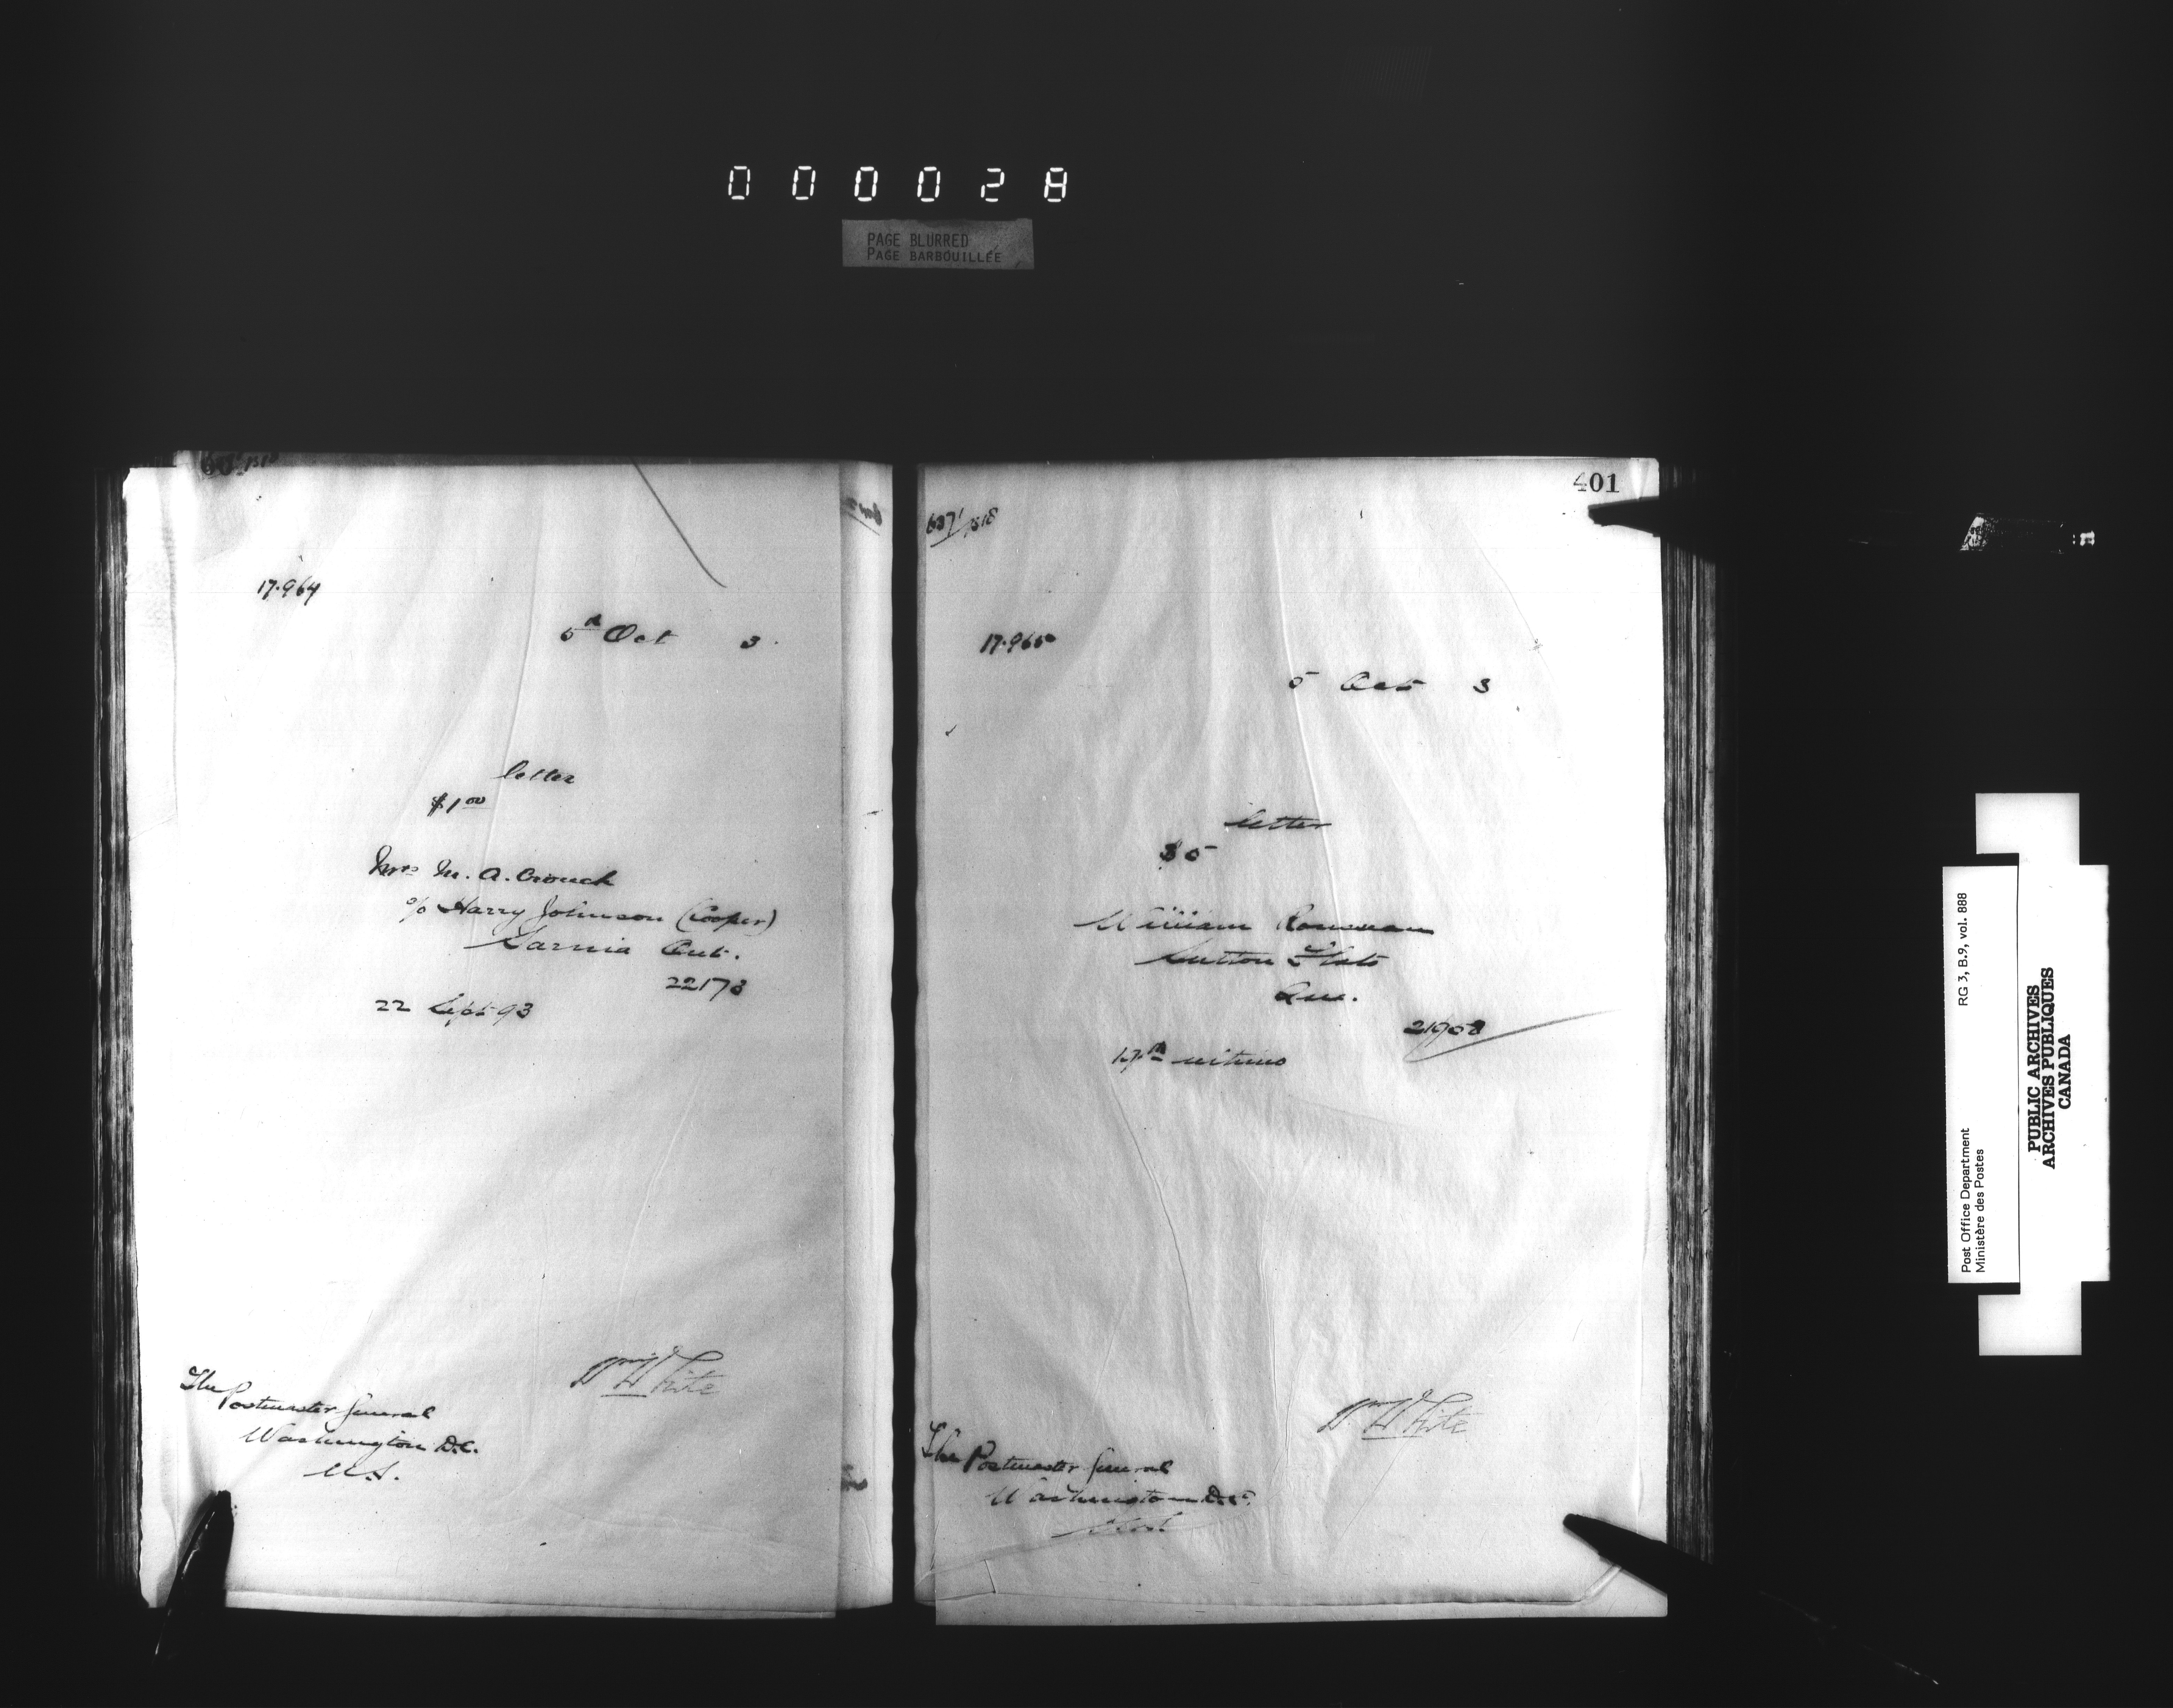 000028
PAGE BLURRED
PAGE BARBOUILLÉE
17.964
5th Oct 3.
letter
$1 00
Mrs M. A. Crouch
c/o Harry Johnson (Cooper)
Sarnia Ont.
22173
22 Sept 93
Wm White
The
Postmaster General
Washington D.C.
U.S.
401
637/1518
17.965
5 Oct 3
letter
$5
William Rousseau
Sutton Flats
Que.
21908
17th ultimo
Wm White
The Postmaster General
Washington D.C.
Post Office Department
Ministère des Postes
RG 3, B.9, vol. 888
PUBLIC ARCHIVES
ARCHIVES PUBLIQUES
CANADA